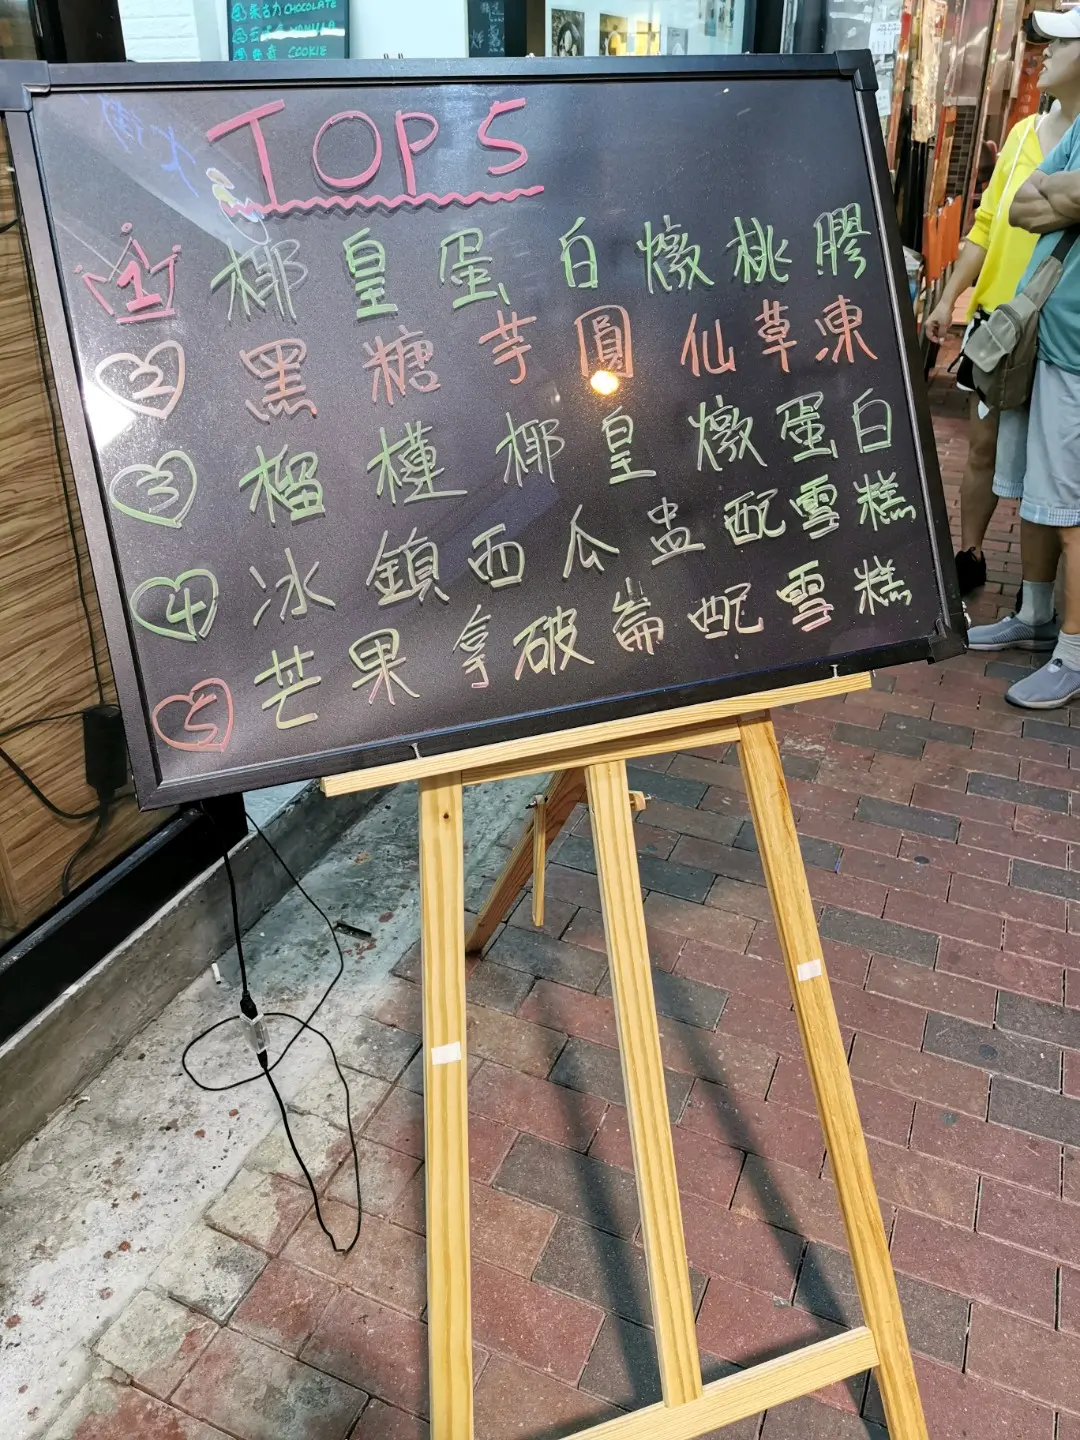 朱古力 CHOCOLATE
VANILLA
COOKIE
TOP 5
1 椰皇蛋白燉桃膠
2 黑糖芋圓仙草凍
3 榴槤椰皇燉蛋白
4 冰鎮西瓜盅配雪糕
5 芒果拿破崙配雪糕